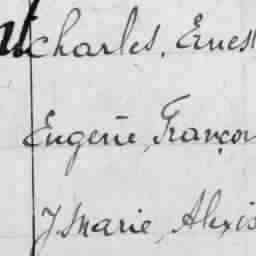 Charles, Ernest
Eugène, Françoi
Marie, Alexis